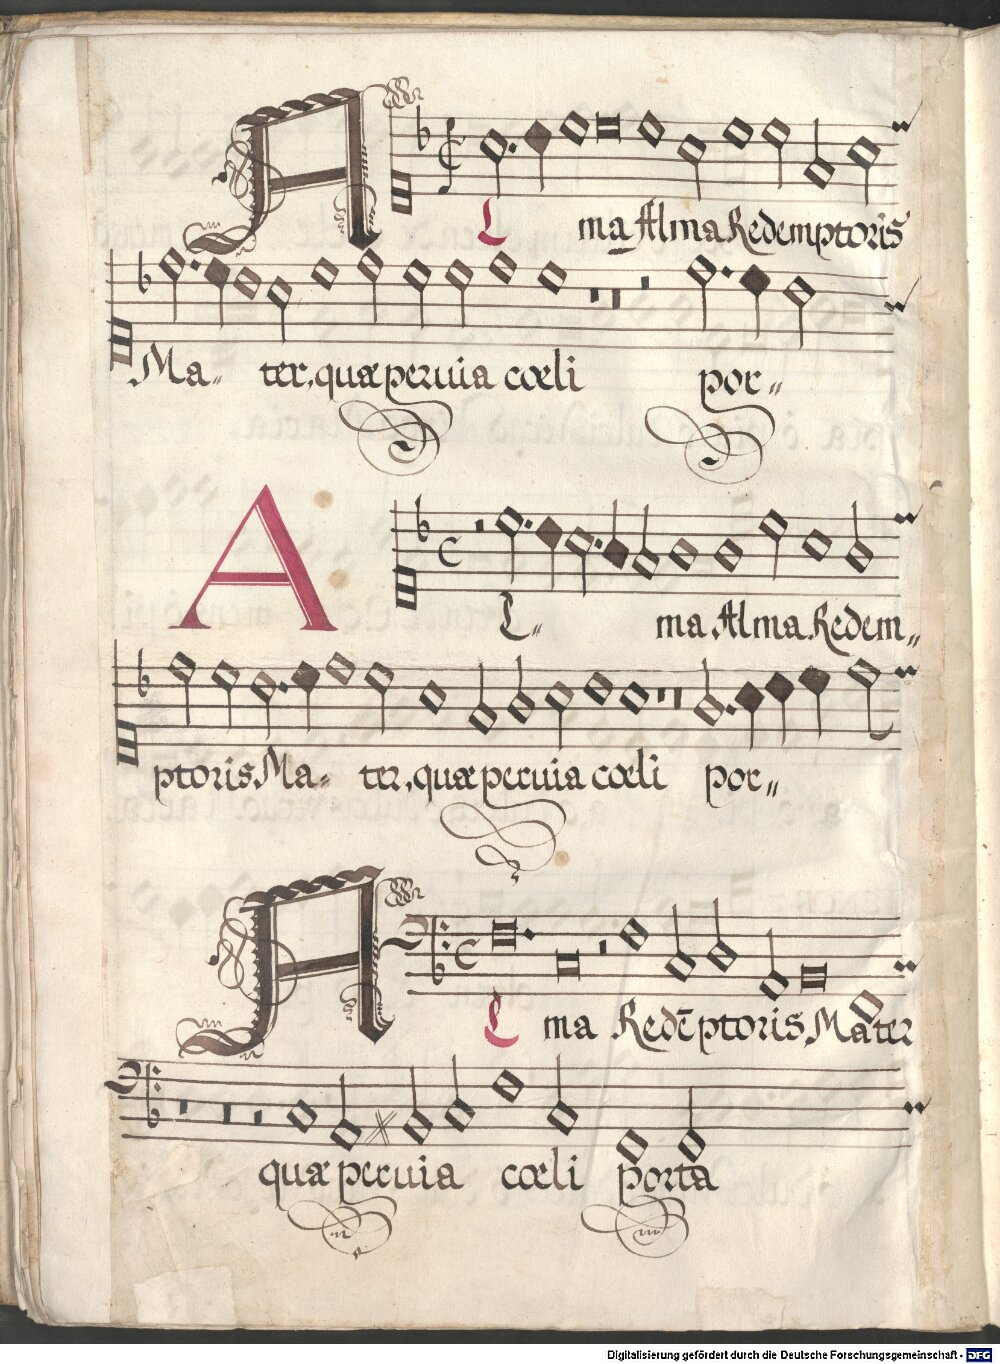 A
L ma Alma Redemptoris
Ma„ ter, quæ peruia cœli por„
A
L„ ma Alma Redem„
ptoris Ma„ ter, quæ peruia cœli por„
A
L ma Redẽptoris Mater
quæ peruia cœli porta
Digitalisierung gefördert durch die Deutsche Forschungsgemeinschaft - DFG